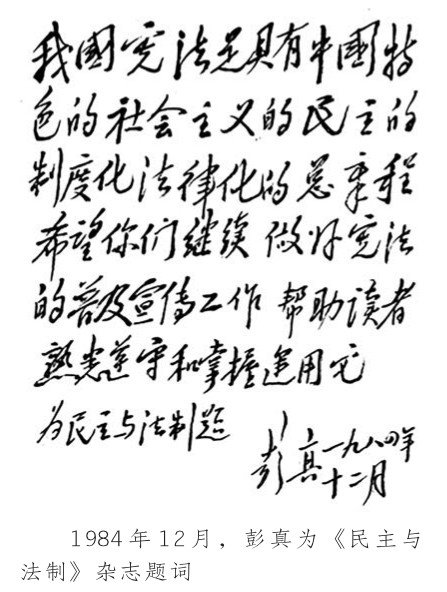 我國宪法是具有中國特
色的社会主义的民主的
制度化法律化的总章程
希望你们继续做好宪法
的普及宣传工作 帮助读者
熟悉遵守和掌握运用它
为民主与法制题
彭真一九八四年
十二月
1984年12月，彭真为《民主与
法制》杂志题词